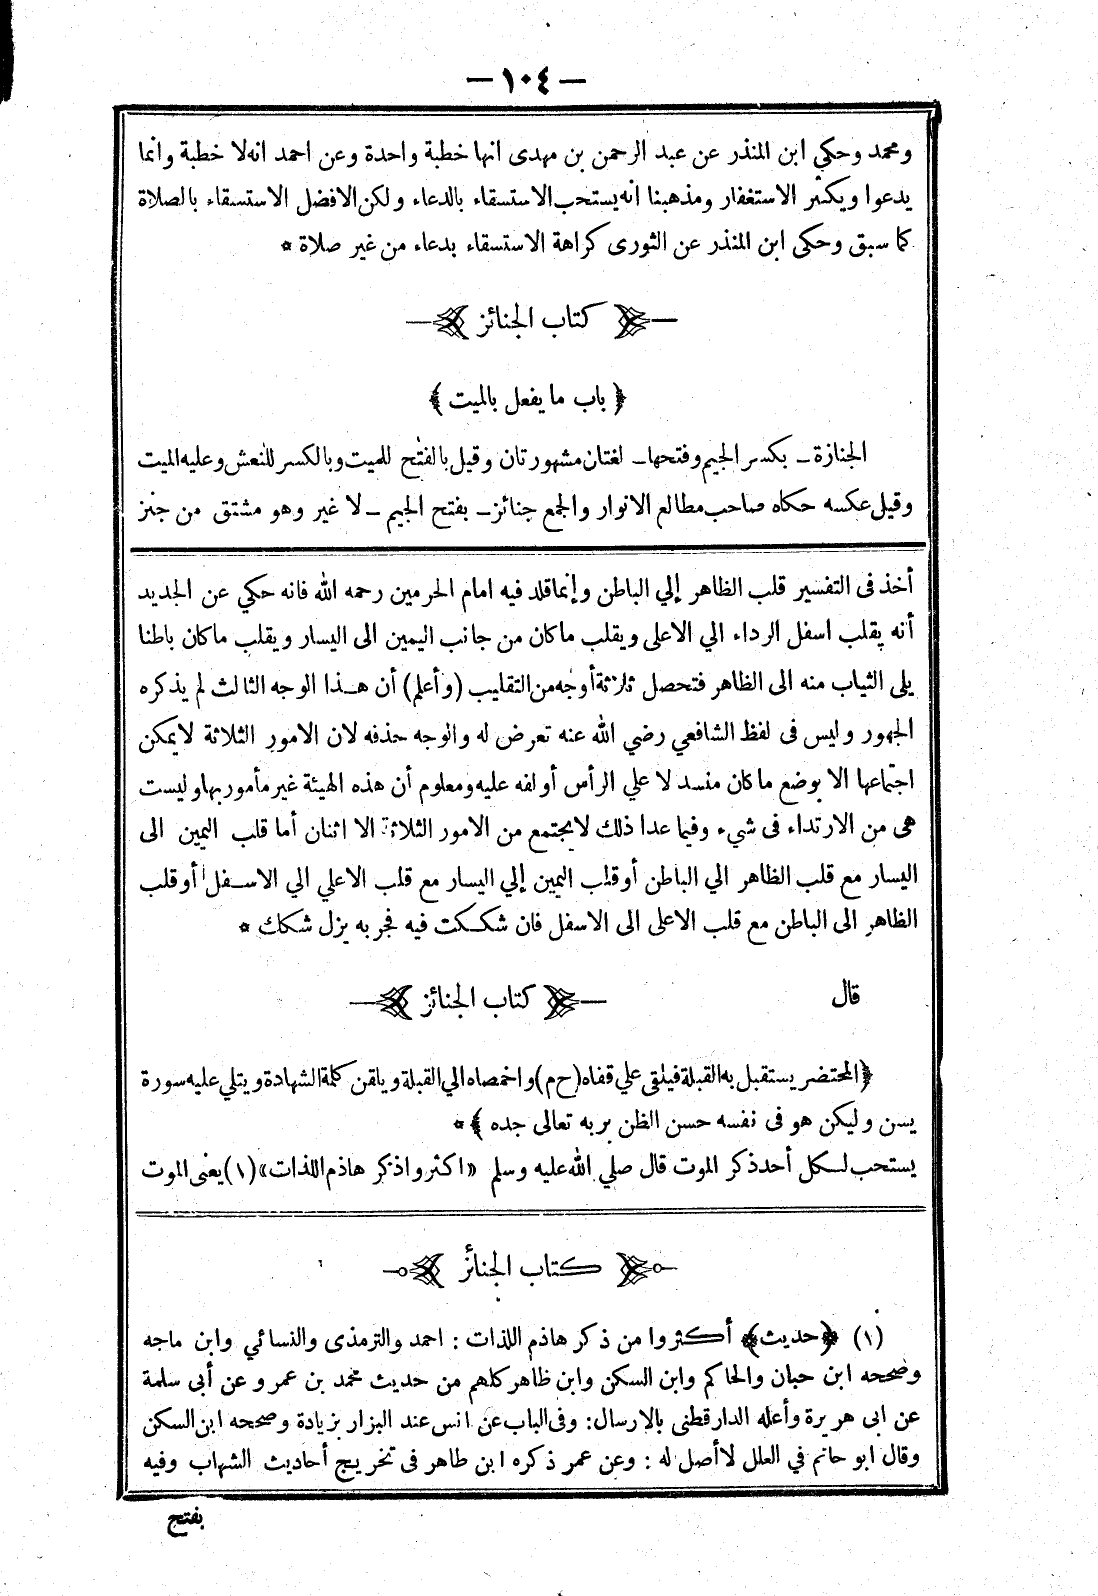 — ١٠٤ —
ومحمد وحكي ابن المنذر عن عبد الرحمن بن مهدى انها خطبة واحدة وعن احمد انه لا خطبة وانما
يدعوا ويكثر الاستغفار ومذهبنا انه يستحب الاستسقاء بالدعاء ولكن الافضل الاستسقاء بالصلاة
كما سبق وحكى ابن المنذر عن الثورى كراهة الاستسقاء بدعاء من غير صلاة *
كتاب الجنائز
﴿ باب ما يفعل بالميت ﴾
الجنازة ـ بكسر الجيم وفتحها ـ لغتان مشهورتان وقيل بالفتح للميت وبالكسر للنعش وعليه الميت
وقيل عكسه حكاه صاحب مطالع الانوار والجمع جنائز ـ بفتح الجيم ـ لا غير وهو مشتق من جنز
أخذ فى التفسير قلب الظاهر إلي الباطن وإنما قلد فيه امام الحرمين رحمه الله فانه حكي عن الجديد
أنه يقلب اسفل الرداء الي الاعلى ويقلب ما كان من جانب اليمين الى اليسار ويقلب ما كان باطنا
يلى الثياب منه الى الظاهر فتحصل ثلاثة أوجه من التقليب (وأعلم) أن هذا الوجه الثالث لم يذكره
الجهور وليس فى لفظ الشافعي رضي الله عنه تعرض له والوجه حذفه لان الامور الثلاثة لا يمكن
اجتماعها الا بوضع ما كان منسد لا علي الرأس أو لفه عليه ومعلوم أن هذه الهيئة غير مأمور بها وليست
هى من الارتداء فى شيء وفيما عدا ذلك لا يجتمع من الامور الثلاثة الا اثنان أما قلب اليمين الى
اليسار مع قلب الظاهر الي الباطن أو قلب اليمين إلي اليسار مع قلب الاعلي الي الاسفل أو قلب
الظاهر الى الباطن مع قلب الاعلى الى الاسفل فان شككت فيه فجربه يزل شكك *
قال كتاب الجنائز
﴿المحتضر يستقبل به القبلة فيلقى علي قفاه (ح م) واخمصاه الي القبلة ويلقن كلمة الشهادة ويتلي عليه سورة
يسن وليكن هو فى نفسه حسن الظن بربه تعالى جده ﴾ *
يستحب لكل أحد ذكر الموت قال صلي الله عليه وسلم «اكثروا ذكر هاذم اللذات» (١) يعنى الموت
كتاب الجنائز
(١) ﴿حديث﴾ أكثروا من ذكر هاذم اللذات : احمد والترمذى والنسائي وابن ماجه
وصححه ابن حبان والحاكم وابن السكن وابن ظاهر كلهم من حديث محمد بن عمرو عن أبى سلمة
عن ابى هريرة وأعله الدارقطنى بالارسال: وفى الباب عن انس عند البزار بزيادة وصححه ابن السكن
وقال ابو حاتم في العلل لا أصل له : وعن عمر ذكره ابن طاهر فى تخريج أحاديث الشهاب وفيه
بفتح